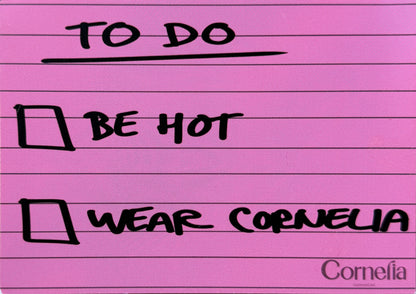 TO DO
BE HOT
WEAR CORNELIA
Cornelia